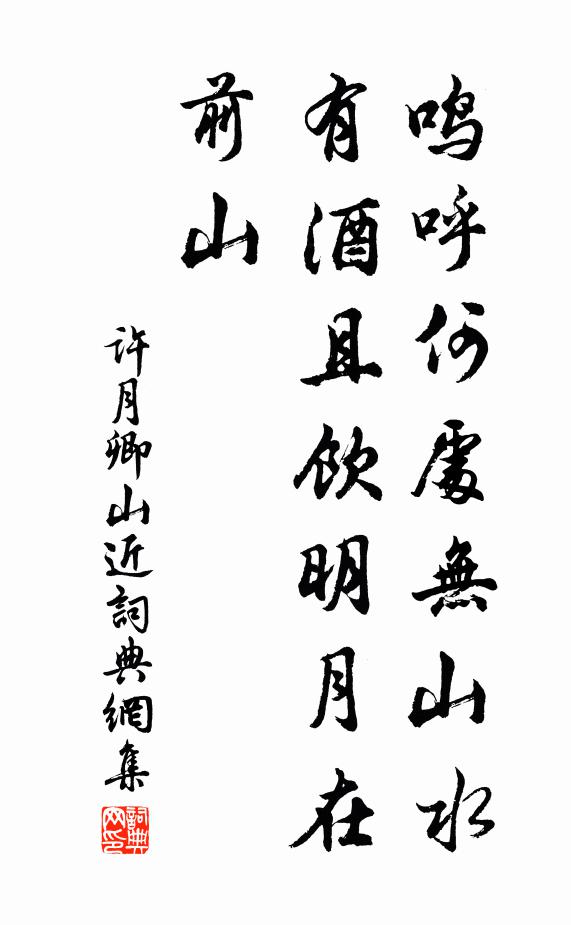 鳴呼何處無山水
有酒且飲明月在
前山
許月卿山近詞典網集
詞典网印